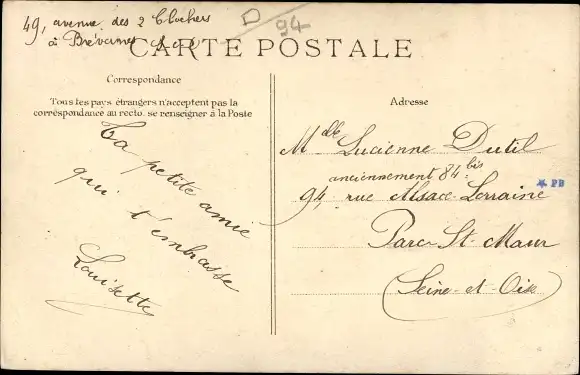 49, avenue des 2 Clochers
à Brévannes S-et-O
D
94
CARTE POSTALE
Correspondance
Tous les pays étrangers n'acceptent pas la
correspondance au recto. se renseigner à la Poste
Ta petite amie
qui t'embrasse
Louisette
Adresse
Mdlle Lucienne Dutil
anciennement 84 bis
94, rue Alsace-Lorraine
Parc-St-Maur
Seine-et-Oise
PB